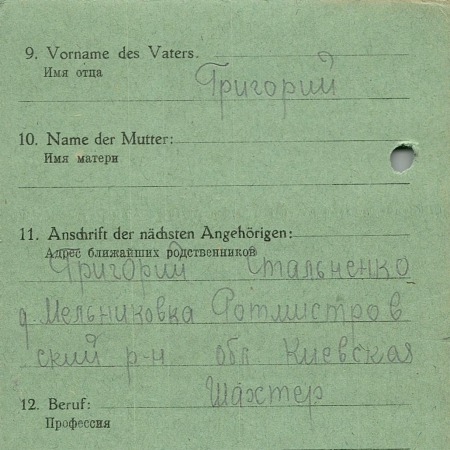 9. Vorname des Vaters.
Имя отца
Григорий
10. Name der Mutter:
Имя матери
11. Anschrift der nächsten Angehörigen:
Адрес ближайших родственников
Григорий Стальченко
д. Мельниковка Ротмистров
ский р-н обл Киевская
Шахтер
12. Beruf:
Профессия